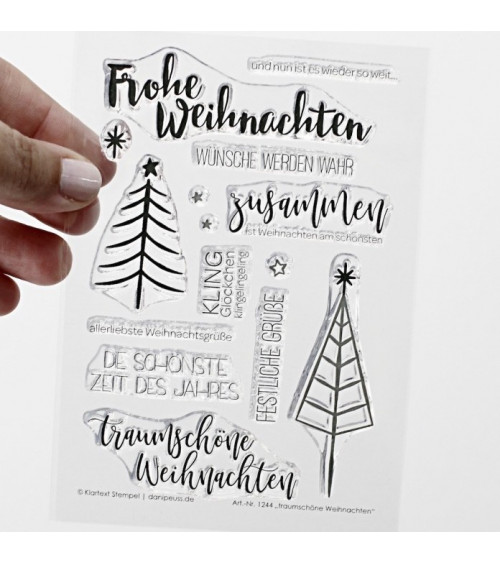 und nun ist es wieder so weit...
Frohe
Weihnachten
WÜNSCHE WERDEN WAHR
zusammen
ist Weihnachten am schönsten
KLING
Glöckchen
klingelingeling
FESTLICHE GRÜßE
allerliebste Weihnachtsgrüße
DE SCHÖNSTE
ZEIT DES JAHRES
traumschöne
Weihnachten
© Klartext Stempel / danipeuss.de
Art.-Nr. 1244 „traumschöne Weihnachten"